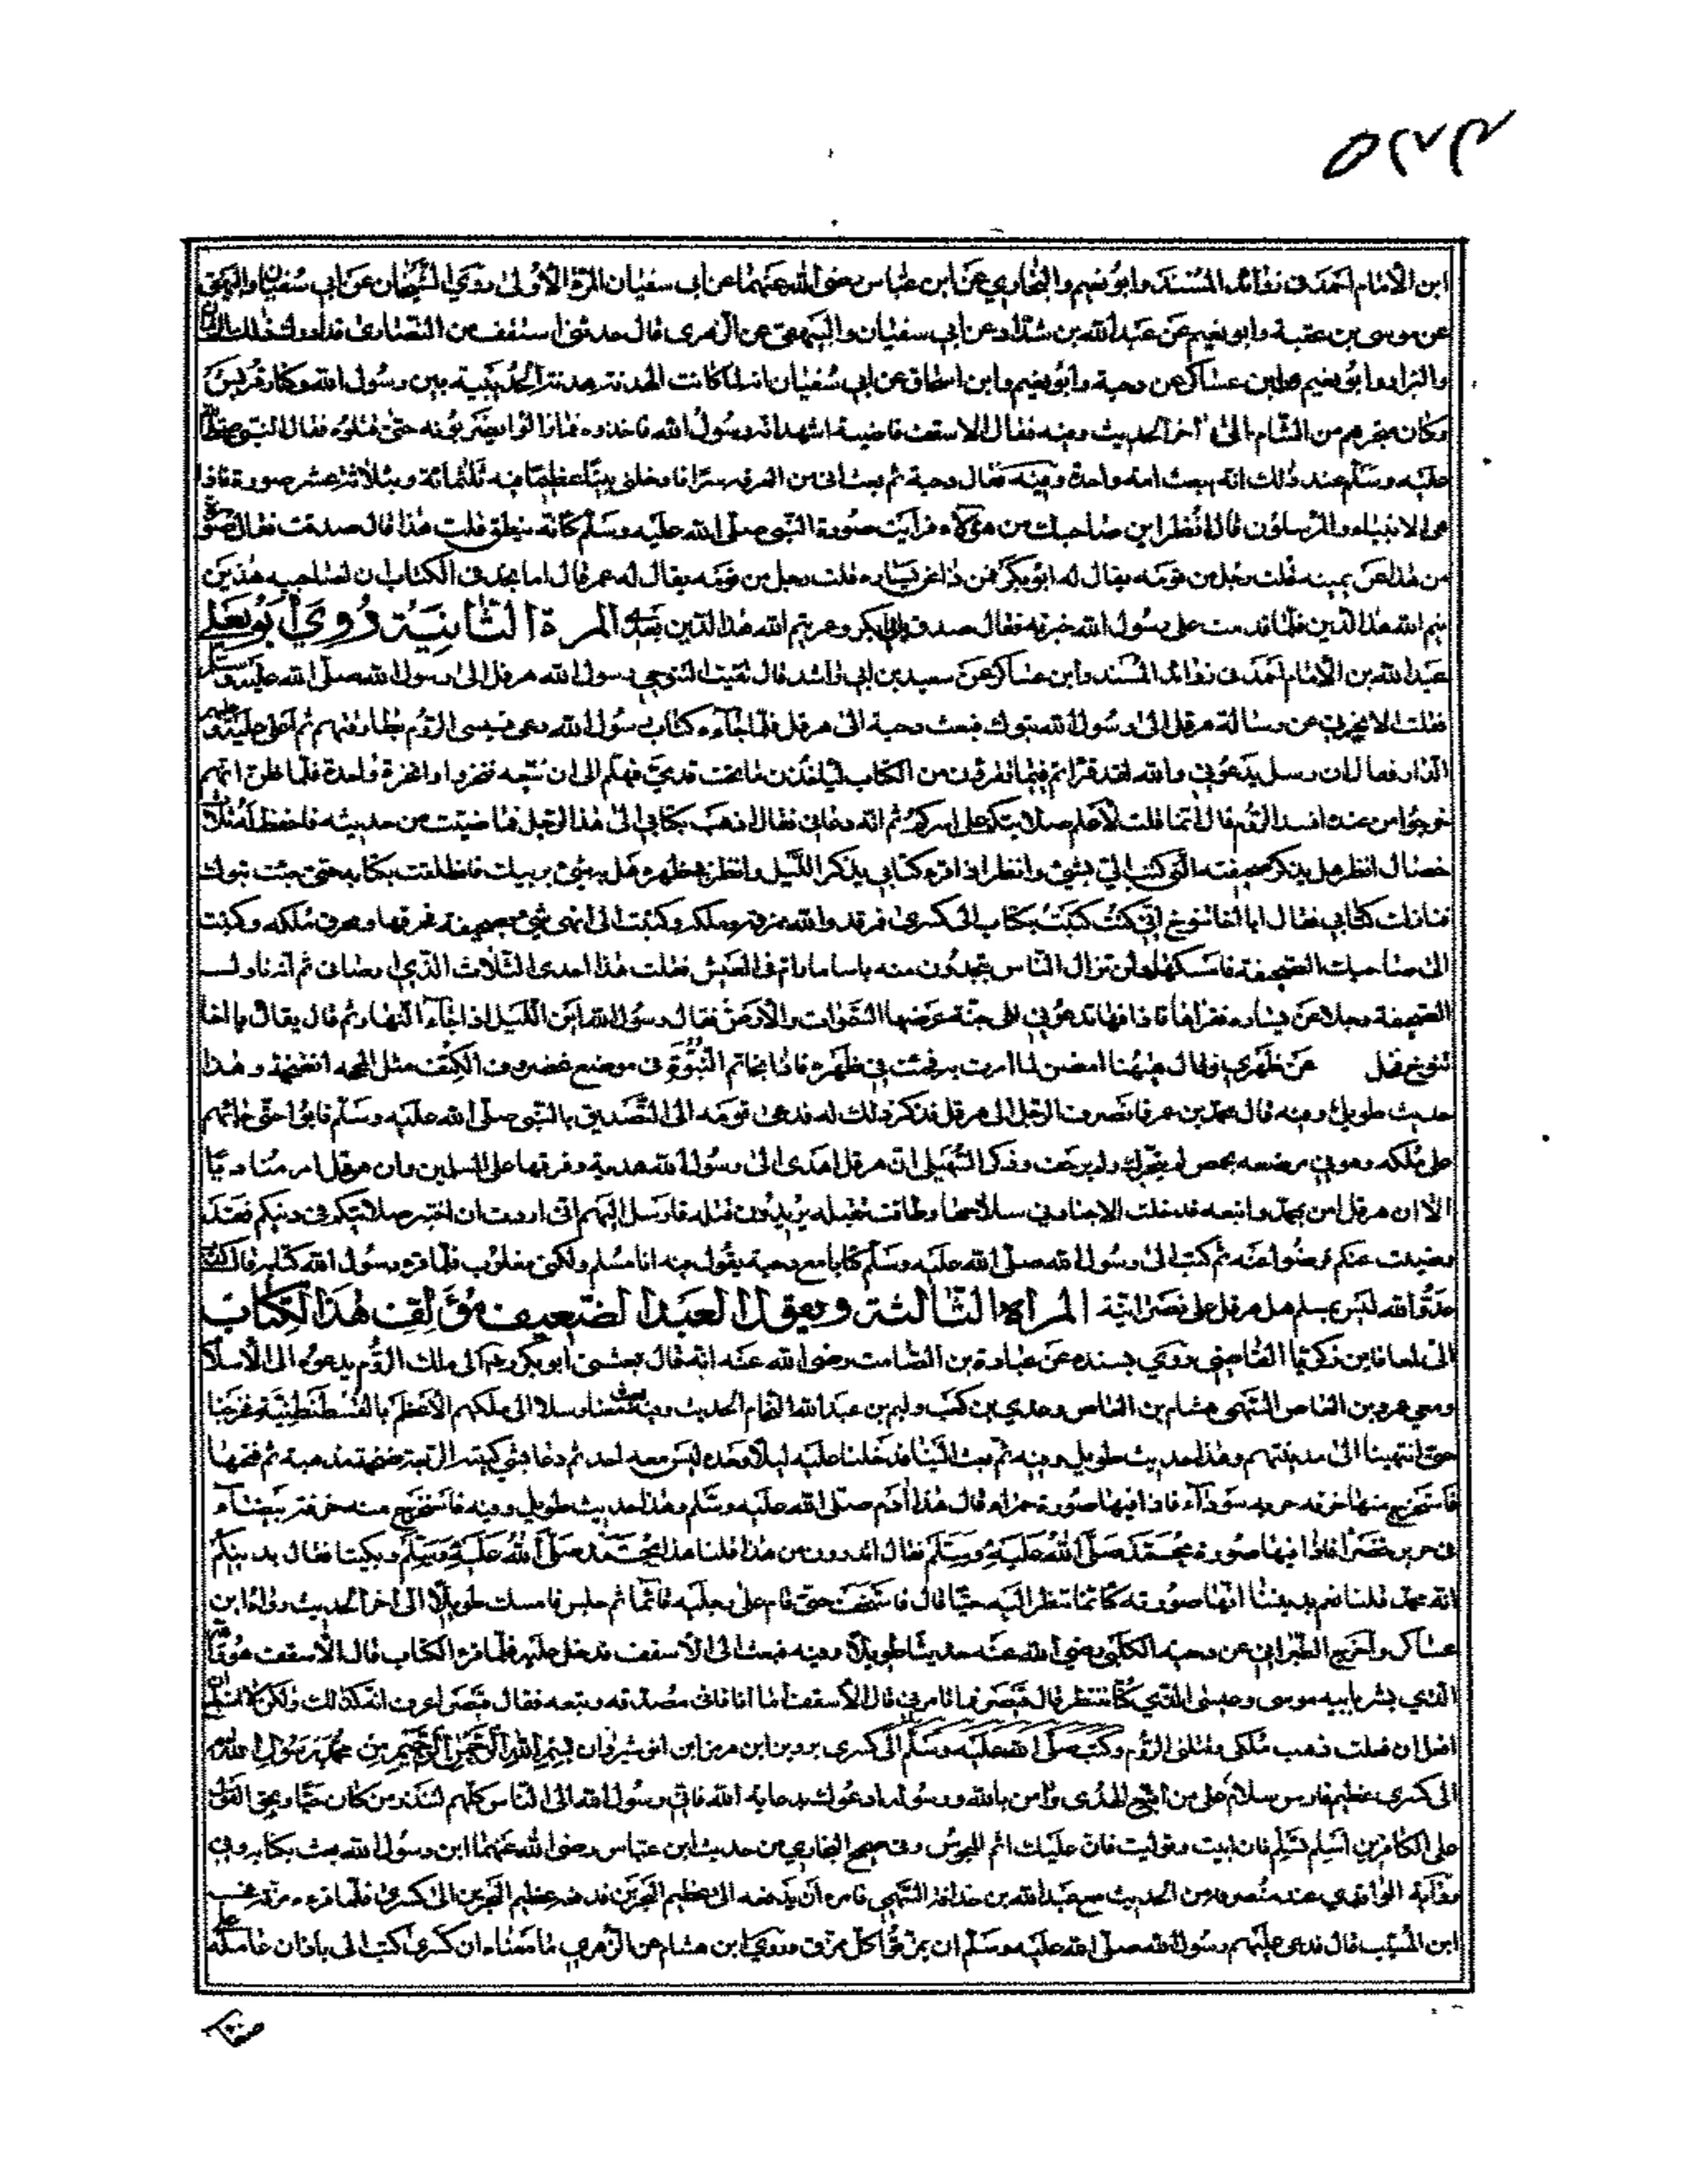 ابن الامام احمد فى زوائد المسند وابو نعيم والبخاري عن ابن عباس رضى الله عنهما عن ابى سفيان المرة الاولى روي الشيخان عن ابي سفيان والبيهقى
عن موسى بن عقبة وابو نعيم عن عبد الله بن شداد عن ابي سفيان والبيهقى عن الزهرى قال حدثنى اسقف من النصارى قد ادرك ذلك الزمان
والبزار وابو نعيم وابن عساكر عن دحية وابو نعيم وابن اسحاق عن ابي سفيان انه لما كانت الهدنة هدنة الحديبية بين رسول الله وكفار قريش
وكان متجرهم من الشام الى اخر الحديث وفيه فقال الاسقف اشهد انه رسول الله فاخذوه فما زالوا يضربونه حتى قتلوه فقال النبي صلى الله
عليه وسلم عند ذلك انه يبعث امة واحدة وفيه قال دحية ثم بعث الى من الغد سرا فادخلنى بيتا عظيما فيه ثلثمائة وثلاثة عشر صورة فاذا
هى الانبياء والمرسلون قال انظر اين صاحبك من هؤلاء فرايت صورة النبي صلى الله عليه وسلم كانه ينطق قلت هذا قال صدقت فقال صورة
من هذا عن يمينه قلت رجل من قومه يقال له ابو بكر فمن ذا عن يساره قلت رجل من قومه يقال له عمر قال اما نجد فى الكتاب ان لصاحبيه هذين
يتم الله هذا الدين فلما قدمت على رسول الله خبرته فقال صدق بابى بكر وعمر يتم الله هذا الدين بعدى المرة الثانية روي ابو يعلى
عبد الله بن الامام احمد فى زوائد المسند وابن عساكر عن سعيد بن ابى راشد قال لقيت التنوخي رسول الله هرقل الى رسول الله صلى الله عليه وسلم
فقلت الا تخبرني عن رسالة هرقل الى رسول الله تبوك فبعث دحية الى هرقل فلما جاءه كتاب رسول الله دعى قسيسى الروم بطارقتهم ثم اغلق عليه وعليهم
الدار فقال ان رسل يدعوني والله لقد قراتم فيما تقرؤن من الكتاب لياخذن ما تحت قدمي فهلم الى ان نتبعه فنخروا نخرة واحدة فلما ظن انهم
خرجوا من عنده افسد الروم قال انما قلت لاعلم صلابتكم على امركم ثم انه دعانى فقال اذهب بكتابي الى هذا الرجل فما ضيعت من حديثه فاحفظ لى ثلاث
خصال انظر هل يذكر صحيفته التى كتب الي بشئ وانظر اذا قرء كتابي يذكر الليل وانظر فى ظهره هل به شئ يريبك فانطلقت بكتابه حتى جئت تبوك
فناولت كتابي فقال يا اخا تنوخ اني كتبت بكتاب الى كسرى فمزقه والله ممزقه وملكه وكتبت الى النجاشي بصحيفة فخرقها ومخرق ملكه وكتبت
الى صاحبك الصحيفة فامسكها ولن تزال الناس يجدون منه باسا ما دام فى العيش فقلت هذا احدى الثلاث الذي اوصانى ثم انه ناول
الصحيفة رجلا عن يساره فقراها فاذا فيها تدعوني الى جنة عرضها السموات والارض فقال رسول الله اين الليل اذا جاء النهار ثم قال تعال يا اخا
تنوخ فحل عن ظهري وقال هيهنا امض لما امرت به فجئت في ظهره فاذا بخاتم النبوة فى موضع غضروف الكتف مثل المحجمة الضخمة وهذا
حديث طويل وفيه قال محمد بن عمر فانصرف الرجل الى هرقل فذكر ذلك له فدعى قومه الى التصديق بالنبي صلى الله عليه وسلم فابوا حتى خافهم
على ملكه وهو في موضعه بحمص لم يتحرك ولم يرجف وذكر السهيلى ان هرقل اهدى الى رسول الله هدية وفرقها على المسلمين وان هرقل امر مناديا
الا ان هرقل امن بمحمد واتبعه فدخلت الاجناد في سلاحها وطافت بقصره يريدون قتله فارسل اليهم انى اردت ان اختبر صلابتكم فى دينكم فقد
رضيت عنكم فرضوا عنه ثم كتب الى رسول الله صلى الله عليه وسلم كتابا مع دحية يقول فيه انا مسلم ولكنى مغلوب فلما قرء رسول الله كتابه قال كذب
عدو الله ليس بمسلم بل هو على نصرانيته المراة الثالثة ويقول العبد الضعيف مؤلف هذا الكتاب
المعافا بن زكريا القاضي روي بسنده عن عبادة بن الصامت رضى الله عنه انه قال بعثنى ابو بكر الى ملك الروم يدعوه الى الاسلام
ومعي عمرو بن العاص السهمى هشام بن العاص وعدي بن كعب ونعيم بن عبد الله النحام الحديث وفيه بعث معنا رسلا الى ملكهم الاعظم بالقسطنطينية فخرجنا
حتى انتهينا الى مدينتهم وهذا حديث طويل وفيه ثم بعث الينا فدخلنا عليه ليلا وحده ليس معه احد ثم دعا بشئ كهيئة الربعة ضخمة مذهبة ثم فتحها
فاستخرج منها خرقة حرير سوداء فاذا فيها صورة حمراء قال هذا ادم صلى الله عليه وسلم وهذا حديث طويل وفيه فاستخرج منه خرقة بيضاء
فى حرير خضرا فاذا فيها صورة محمد صلى الله عليه وسلم فقال اتدرون من هذا قلنا هذا محمد صلى الله عليه وسلم وبكينا فقال بدينكم
انه محمد قلنا نعم بديننا انها صورته كانما ننظر اليه حيا قال فاستخف حتى قام على رجليه قائما ثم جلس فامسك طويلا الى اخر الحديث رواه ابن
عساكر واخرج الطبراني عن دحية الكلبى رضي الله عنه حديثا طويلا وفيه فبعث الى الاسقف فدخل عليه فلما قرء الكتاب قال الاسقف هو والله
الذي بشر به موسى وعيسى الذي كنا ننتظر قال قيصر فما تامرني قال الاسقف اما انا فانى مصدقه ومتبعه فقال قيصر اعرف انه كذلك ولكن لا استطيع
افعل ان فعلت ذهب ملكى وقتلنى الروم وكتب صلى الله عليه وسلم الى كسرى برويز ابن هرمز ابن انوشيروان بسم الله الرحمن الرحيم من محمد رسول الله
الى كسرى عظيم فارس سلام على من اتبع الهدى وامن بالله ورسوله ادعوك بدعاية الله فاني رسول الله الى الناس كلهم لينذر من كان حيا ويحق القول
على الكافرين اسلم تسلم فان ابيت وتوليت فان عليك اثم المجوس وفى صحيح البخاري من حديث ابن عباس رضى الله عنهما ان رسول الله بعث بكتابه وفي
رواية الواقدي عنه منصرفه من الحديبية مع عبد الله بن حذافة السهمي فامره ان يدفعه الى عظيم البحرين فدفعه عظيم البحرين الى كسرى فلما قرءه مزقه فحسب
ابن المسيب قال فدعى عليهم رسول الله صلى الله عليه وسلم ان يمزقوا كل ممزق وروي ابن هشام عن الزهري ما معناه ان كسرى كتب الى باذان عامله على
صنعا